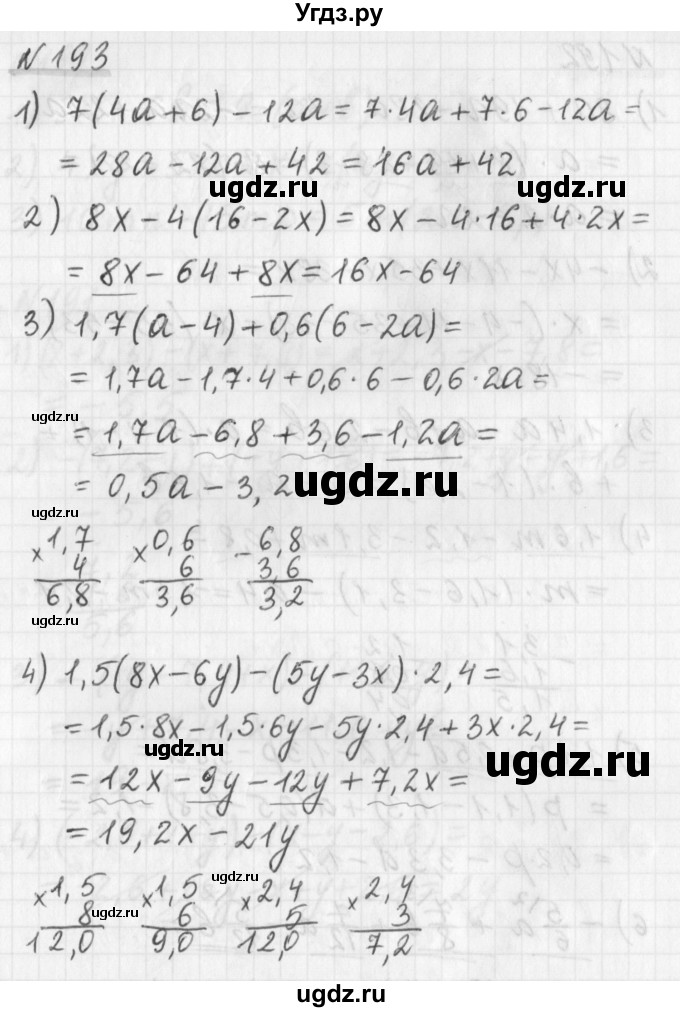 Угдз.ру
N 193
1) 7(4a+6) - 12a = 7·4a + 7·6 - 12a =
= 28a - 12a + 42 = 16a + 42
ugdz.ru
ugdz.ru
2) 8x - 4(16 - 2x) = 8x - 4·16 + 4·2x =
= 8x - 64 + 8x = 16x - 64
3) 1,7(a - 4) + 0,6(6 - 2a) =
= 1,7a - 1,7·4 + 0,6·6 - 0,6·2a =
ugdz.ru
= 1,7a - 6,8 + 3,6 - 1,2a =
= 0,5a - 3,2
ugdz.ru
ugdz.ru
×1,7 ×0,6 -6,8
4 6 3,6
6,8 3,6 3,2
ugdz.ru
4) 1,5(8x - 6y) - (5y - 3x)·2,4 =
= 1,5·8x - 1,5·6y - 5y·2,4 + 3x·2,4 =
ugdz.ru
ugdz.ru
= 12x - 9y - 12y + 7,2x =
= 19,2x - 21y
ugdz.ru
×1,5 ×1,5 ×2,4 ×2,4
8 6 5 3
ugdz.ru
12,0 9,0 12,0 7,2
ugdz.ru
ugdz.ru